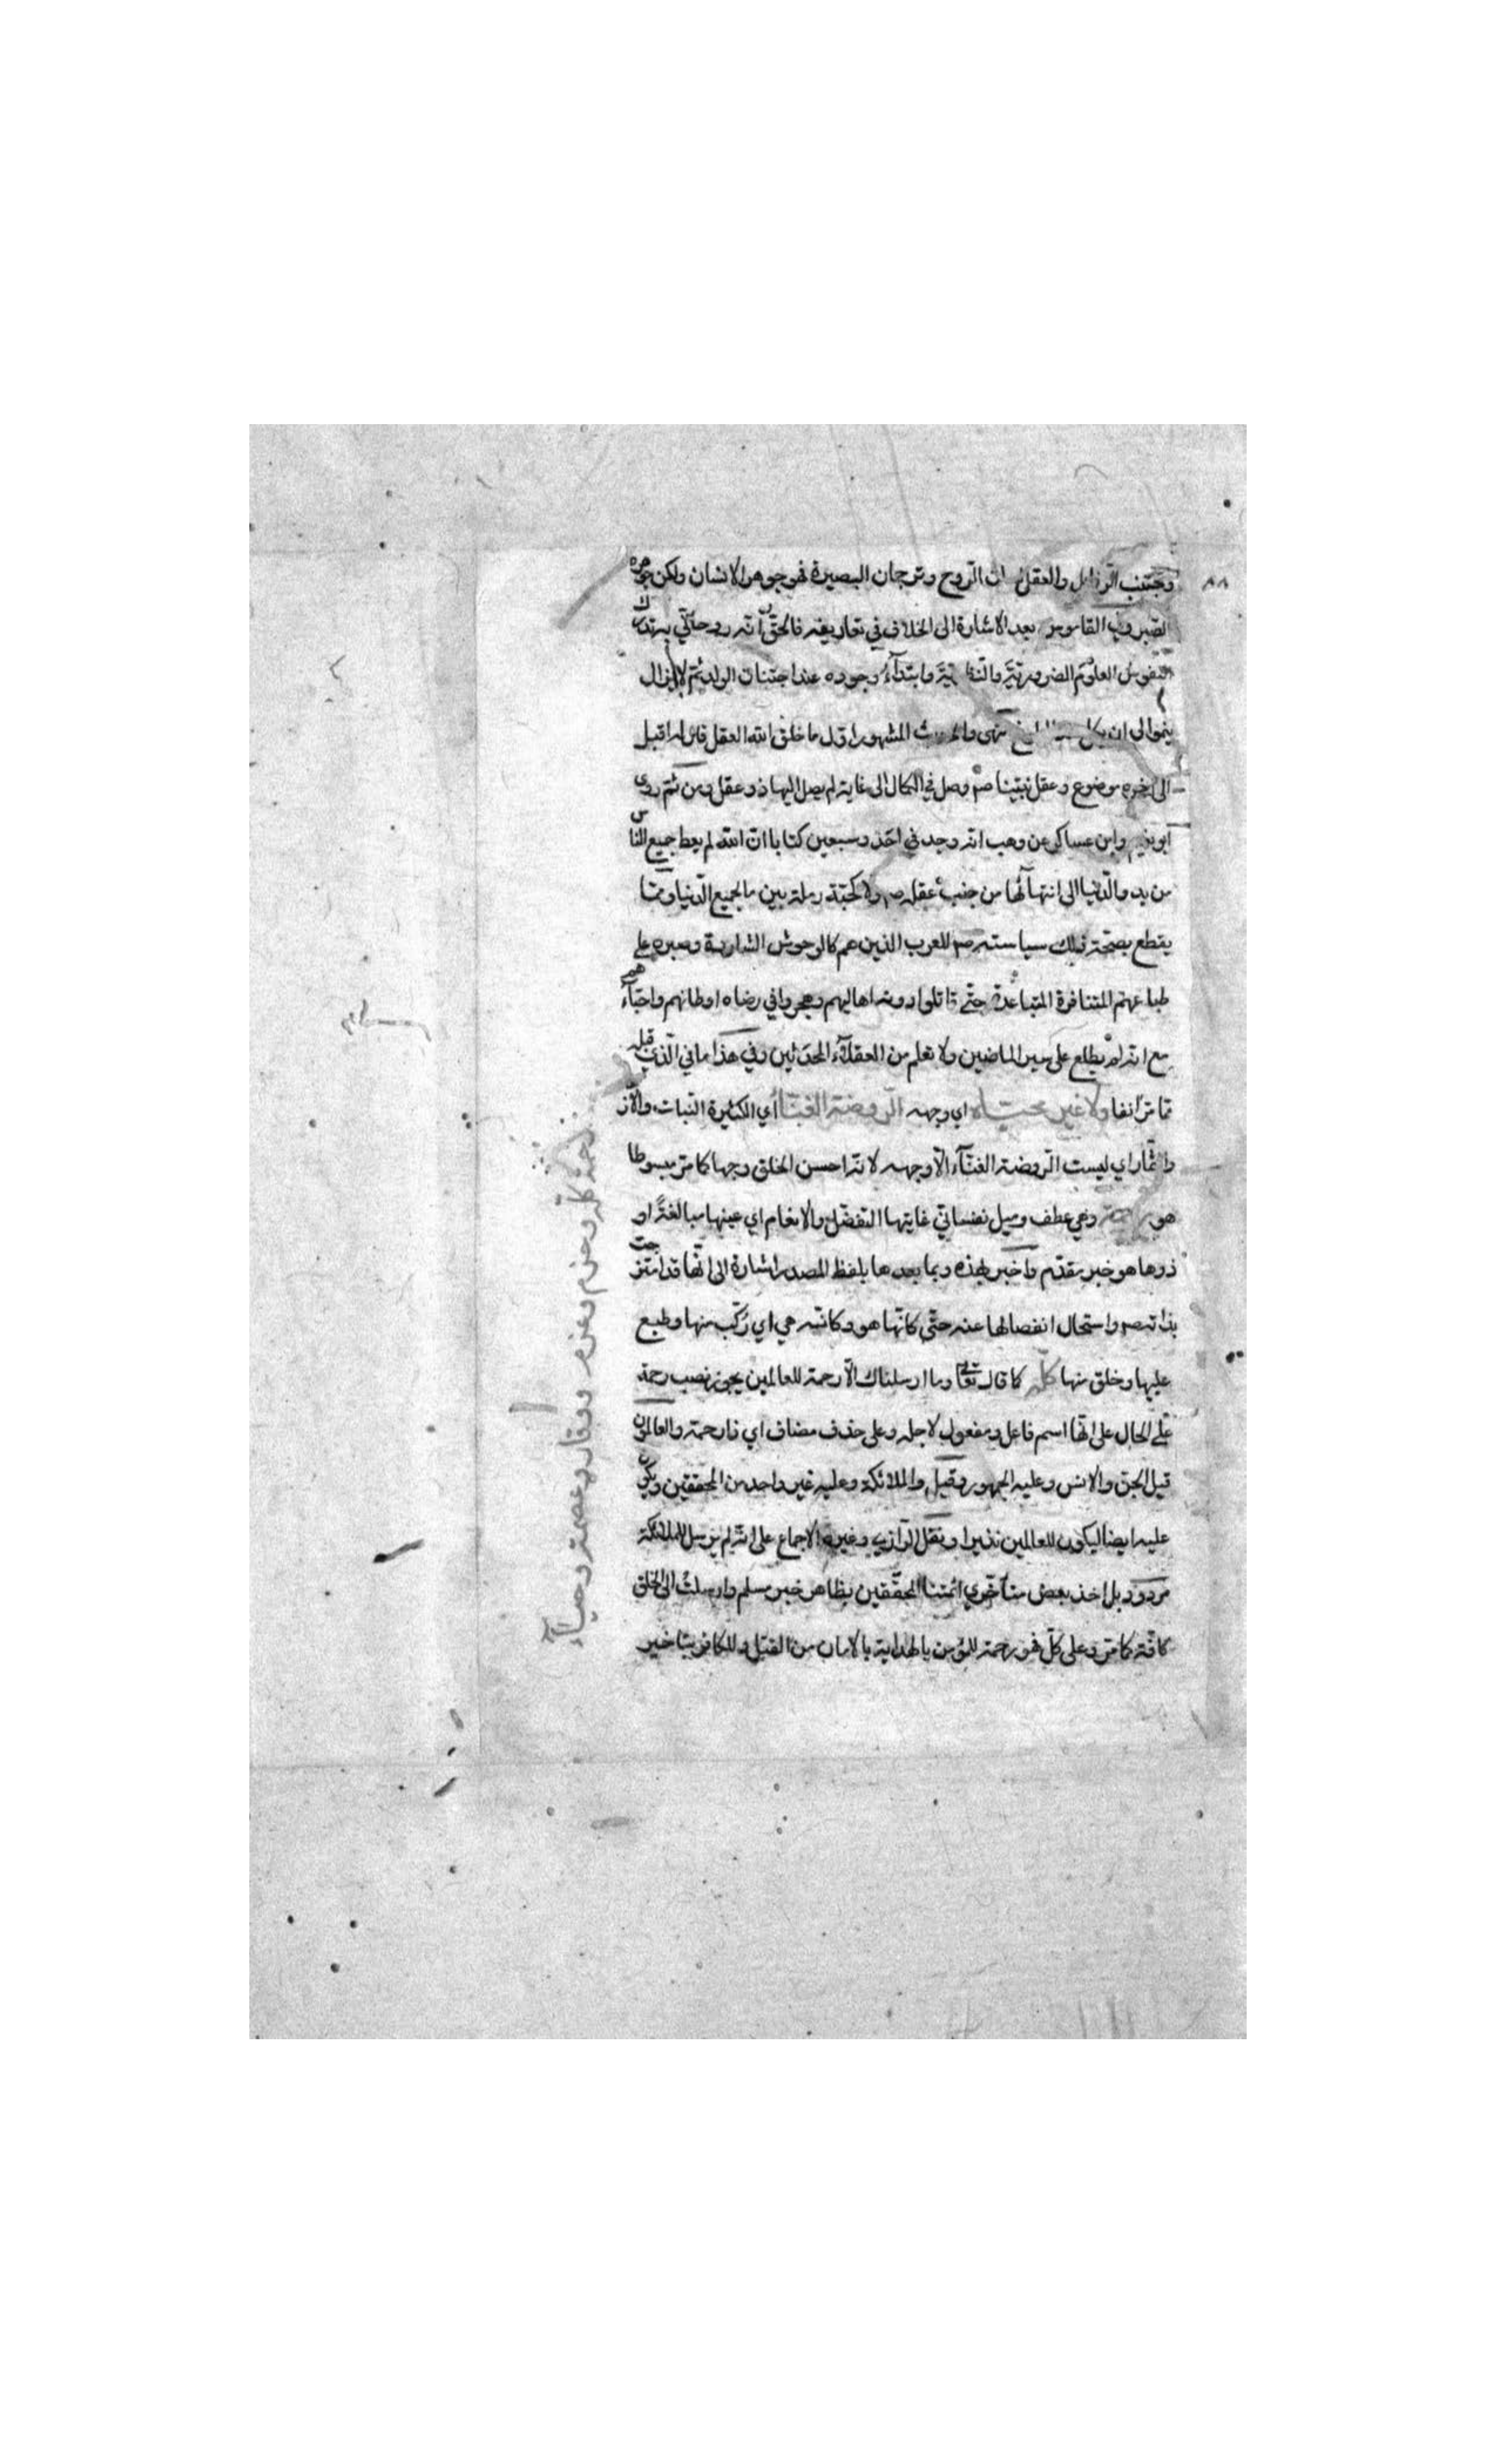 وتجتنب الرذائل والعقل لسان الروح وترجمان البصيرة فهو جوهر الانسان ولكن جوهره
الصبر وفي القاموس بعد الاشارة الى الخلاف في تعاريفه فالحق انه روحاني به تدرك
النفوس العلوم الضرورية والنظرية وابتداء وجوده عند اجتنان الولد ثم لا يزال
ينموا الى ان يكمل انتهى والحديث المشهور اول ما خلق الله العقل قال له اقبل
الى اخره موضوع وعقل نبينا صم وصل في الكمال الى غاية لم يصل اليها ذو عقل ومن ثم روى
ابو نعيم وابن عساكر عن وهب انه وجد في احد وسبعين كتابا ان الله لم يعط جميع الناس
من بدو الدنيا الى انتهائها من جنب عقله صم الا كحبة رملة بين رمال جميع الدنيا ومما
يقطع بصحة ذلك سياسته صم للعرب الذين هم كالوحوش الشاردة وصبره على
طباعهم المتنافرة المتباعدة حتى قاتلوا دونه اهاليهم وهجروا في رضاه اوطانهم واحباءهم
مع انه لم يطلع على سير الماضين ولا تعلم من العقلاء المحدثين وفي هذا ما في الذي قبله
مما مر انفا ولا غير محياه اي وجهه الروضة الغناء اي الكثيرة النبات والا
والثمار اي ليست الروضة الغناء الا وجهه لانه احسن الخلق وجها كما مر مبسوطا
هو رحمة وهي عطف وميل نفساني غايتها التفضل والانعام اي عينها مبالغة او
ذوها هو خبر مقدم واخبر بهذه وبما بعدها بلفظ المصدر اشارة الى انها قد امتزجت
بذاته صم واستحال انفصالها عنه حتى كانها هو وكانه هي اي ركب منها وطبع
عليها وخلق منها كله كما قال تعالى وما ارسلناك الا رحمة للعالمين يجوز نصب رحمة
على الحال على انها اسم فاعل ومفعول لاجله وعلى حذف مضاف اي ذا رحمة والعالمون
قيل الجن والانس وعليه الجمهور وقيل والملائكة وعليه غير واحد من المحققين ويكون
عليه ايضا ليكون للعالمين نذيرا ونقل الرازي وغيره الاجماع على انه لم يرسل للملائكة
مردود بل اخذ بعض متأخري ائمتنا المحققين بظاهر خبر مسلم وارسلت الى الخلق
كافة كما مر وعلى كل فهو رحمة للمؤمن بالهداية بالامان من القتل وللكافر بتاخير
رحمة كله وحزم وعزم ووقار وعصمة وحياء
٨٨